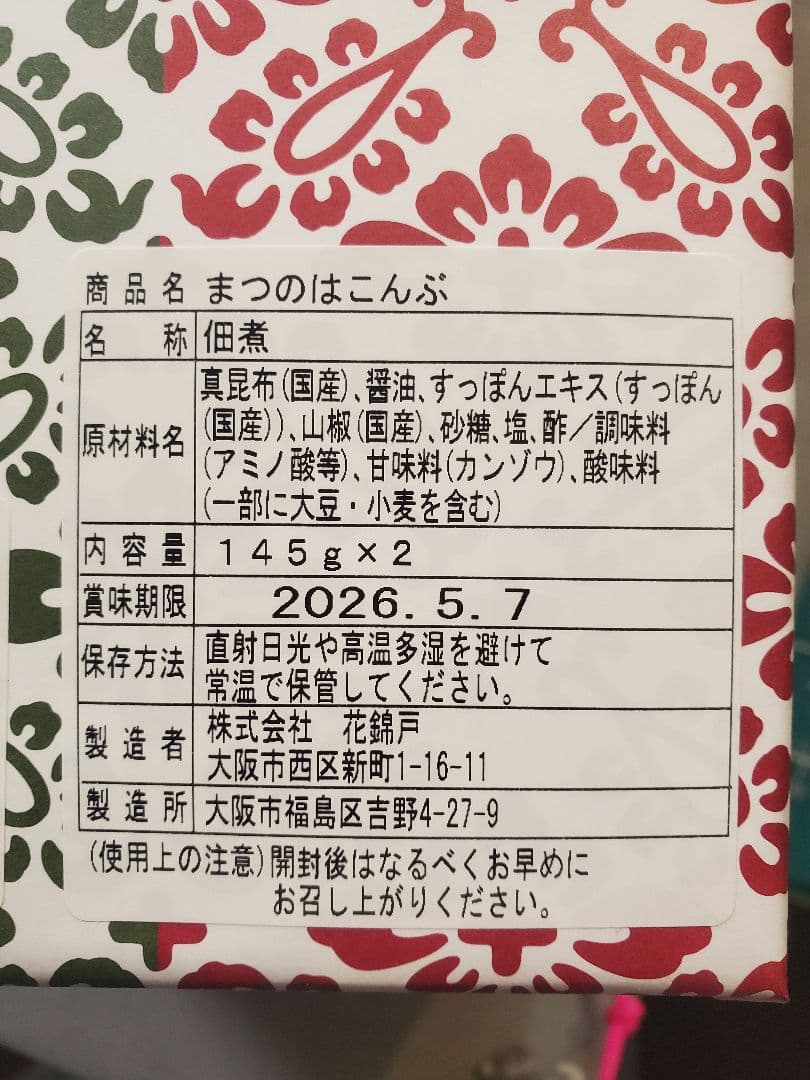 商品名 まつのはこんぶ
名称 佃煮
原材料名 真昆布(国産)、醤油、すっぽんエキス(すっぽん
(国産))、山椒(国産)、砂糖、塩、酢/調味料
(アミノ酸等)、甘味料(カンゾウ)、酸味料
(一部に大豆・小麦を含む)
内容量 145g×2
賞味期限 2026.5.7
保存方法 直射日光や高温多湿を避けて
常温で保管してください。
製造者 株式会社 花錦戸
大阪市西区新町1-16-11
製造所 大阪市福島区吉野4-27-9
(使用上の注意)開封後はなるべくお早めに
お召し上がりください。